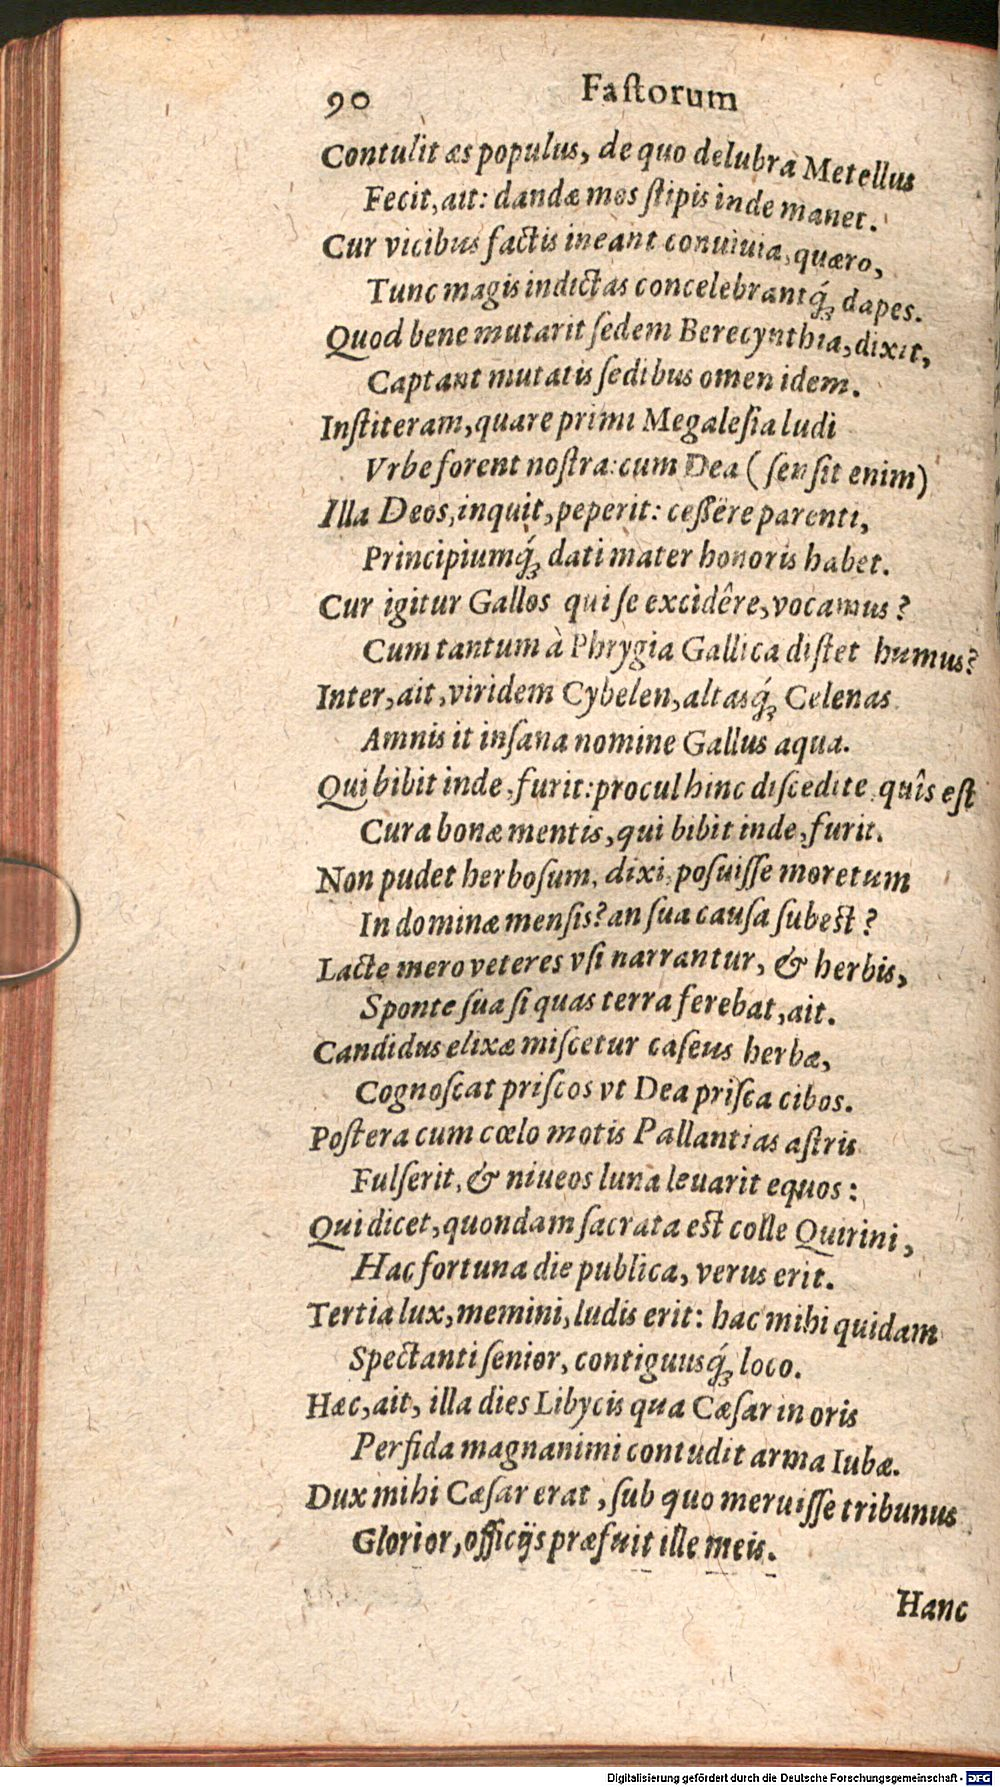 90 Faſtorum
Contulit æs populus, de quo delubra Metellus
Fecit, ait: dandæ mos ſtipis inde manet.
Cur vicibus factis ineant conuiuia, quæro,
Tunc magis indictas concelebrantq́; dapes.
Quod bene mutarit ſedem Berecynthia, dixit,
Captant mutatis ſedibus omen idem.
Inſtiteram, quare primi Megaleſia ludi
Vrbe forent noſtra: cum Dea (ſenſit enim)
Illa Deos, inquit, peperit: ceſſëre parenti,
Principiumq́; dati mater honoris habet.
Cur igitur Gallos qui ſe excidêre, vocamus?
Cum tantum à Phrygia Gallica diſtet humus?
Inter, ait, viridem Cybelen, altasq́; Celenas
Amnis it inſana nomine Gallus aqua.
Qui bibit inde, furit: procul hinc diſcedite, quîs eſt
Cura bonæ mentis, qui bibit inde, furit.
Non pudet herboſum, dixi, poſuiſſe moretum
In dominæ menſis? an ſua cauſa ſubeſt?
Lacte mero veteres vſi narrantur, & herbis,
Sponte ſua ſi quas terra ferebat, ait.
Candidus elixæ miſcetur caſeus herbæ,
Cognoſcat priſcos vt Dea priſca cibos.
Poſtera cum cœlo motis Pallantias aſtris
Fulſerit, & niueos luna leuarit equos:
Qui dicet, quondam ſacrata eſt colle Quirini,
Hac fortuna die publica, verus erit.
Tertia lux, memini, ludis erit: hac mihi quidam
Spectanti ſenior, contiguusq́; loco.
Hæc, ait, illa dies Libycis qua Cæſar in oris
Perfida magnanimi contudit arma Iubæ.
Dux mihi Cæſar erat, ſub quo meruiſſe tribunus
Glorior, officijs præfuit ille meis.
Hanc
Digitalisierung gefördert durch die Deutsche Forschungsgemeinschaft - DFG